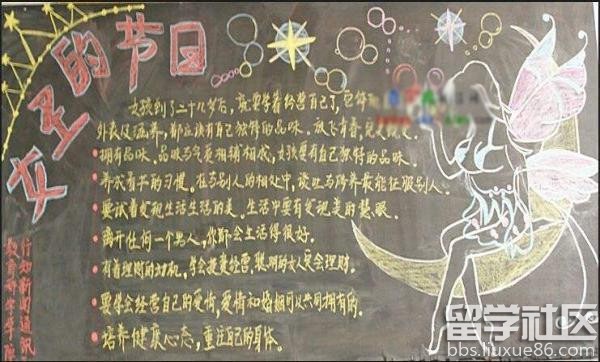 女生的节日
女孩到了二十几岁后，就要学着经营自己了，
外表及涵养，都应该有自己独特的品味。
拥有品味，品味与气质相辅相成，女孩要有自己独特的品味。
养成看书的习惯，在与别人的相处中，谈吐与修养最能征服别人。
要试着发现生活生活的美，生活中要有发现美的慧眼。
离开任何一个男人，你都会生活得很好。
有着理财的动机，学会投资经营，聪明的女人定会理财。
要学会经营自己的爱情，爱情和婚姻可以共同拥有的。
培养健康心态，重注自己的身体。
行知新闻通讯
教育科学学院
留学社区
bbs.liuxue86.com